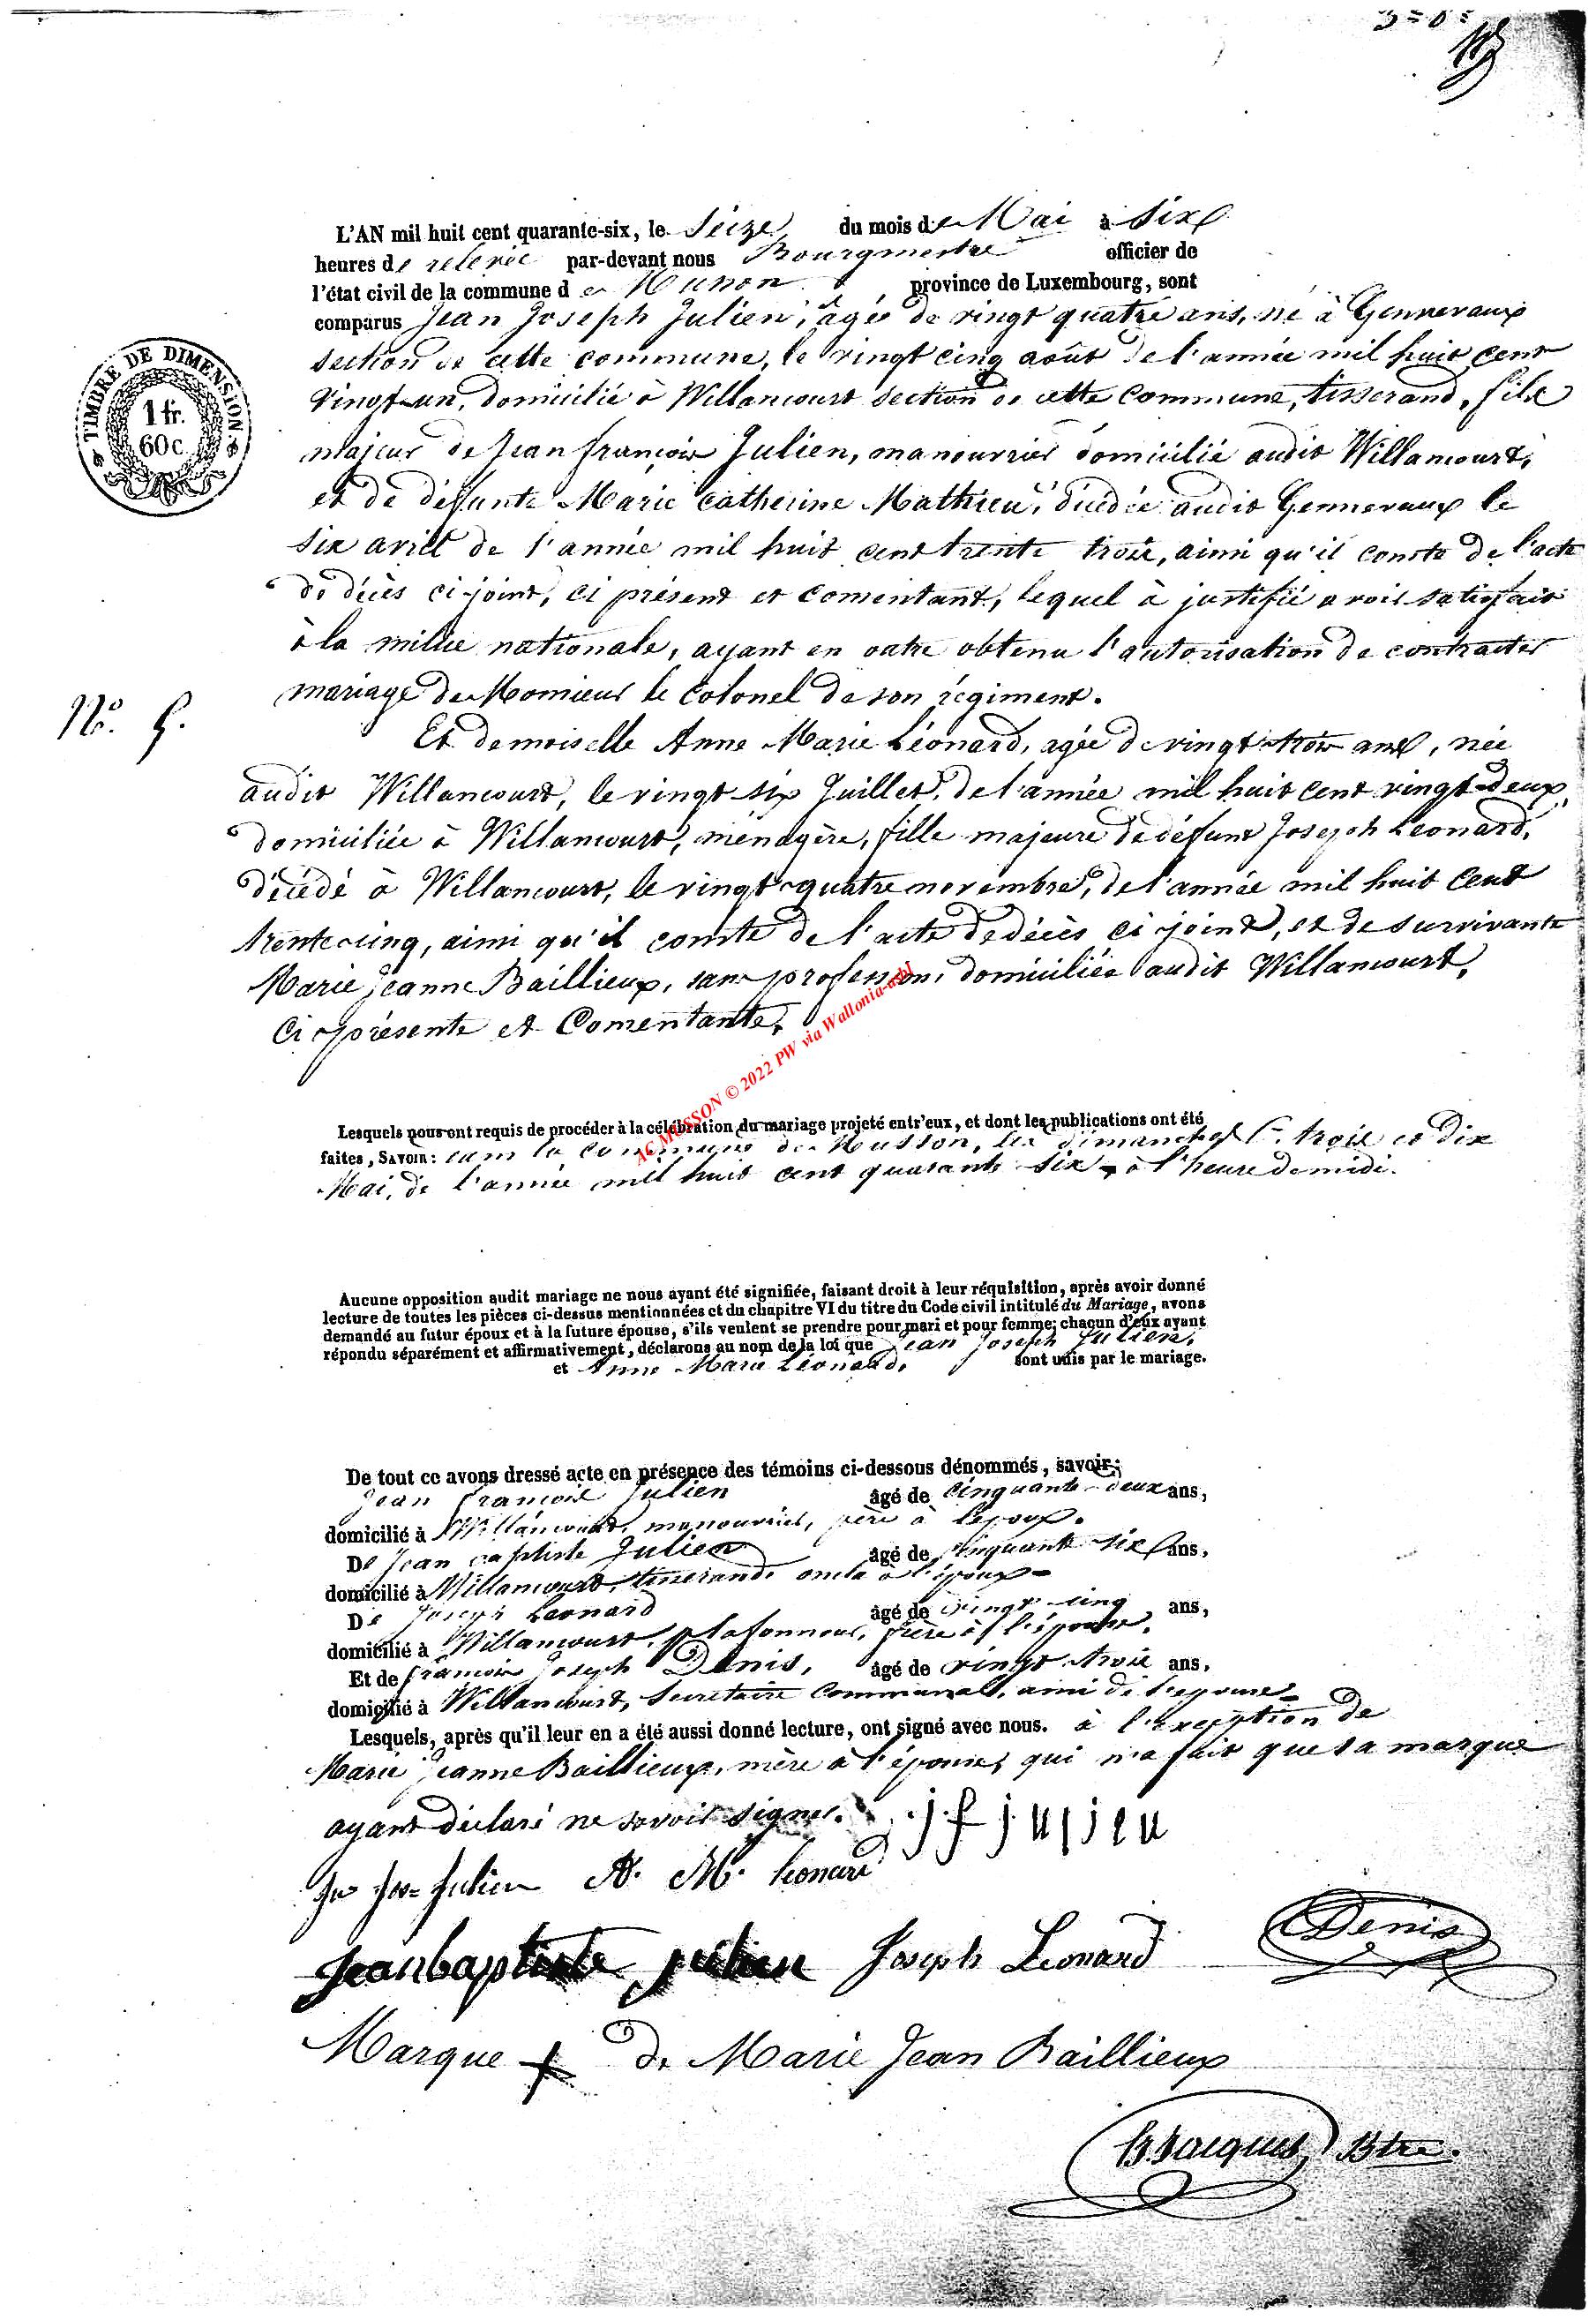 L'AN mil huit cent quarante-six, le Seize du mois de Mai à Six
heures de relevée par-devant nous Bourgmestre officier de
l'état civil de la commune de Musson province de Luxembourg, sont
comparus Jean Joseph Julien, agée de vingt quatre ans, né à Gennevaux
section de cette commune, le vingt cinq août de l'année mil huit cent
vingt-un, domicilié à Willancourt section de cette commune, tisserand, fils
majeur de Jean françois Julien, manouvrier domicilié audit Willancourt,
et de défunte Marie Catherine Mathieu, décédée audit Gennevaux le
six avril de l'année mil huit cent trente trois, ainsi qu'il conste de l'acte
de décès ci-joint, ci présent et consentant, lequel à justifié avoir satisfait
à la milice nationale, ayant en outre obtenu l'autorisation de contracter
mariage de Monsieur le Colonel de son régiment.
N.º 5.
Et demoiselle Anne Marie Léonard, agée de vingt-trois ans, née
audit Willancourt, le vingt six Juillet, de l'année mil huit cent vingt-deux,
domiciliée à Willancourt, ménagère, fille majeure de défunt Joseph Léonard,
décédé à Willancourt, le vingt-quatre novembre, de l'année mil huit cent
trente-cinq, ainsi qu'il conste de l'acte de décès ci-joint, et de survivante
Marie Jeanne Baillieux, sans profession, domiciliée audit Willancourt,
Ci-présente et Consentante.
Lesquels nous ont requis de procéder à la célébration du mariage projeté entr'eux, et dont les publications ont été
faites, SAVOIR: dans la commune de Musson, les dimanches trois et dix
Mai, de l'année mil huit cent quarante six, à l'heure de midi.
Aucune opposition audit mariage ne nous ayant été signifiée, faisant droit à leur réquisition, après avoir donné
lecture de toutes les pièces ci-dessus mentionnées et du chapitre VI du titre du Code civil intitulé du Mariage, avons
demandé au futur époux et à la future épouse, s'ils veulent se prendre pour mari et pour femme; chacun d'eux ayant
répondu séparément et affirmativement, déclarons au nom de la loi que Jean Joseph Julien,
et Anne Marie Léonard, sont unis par le mariage.
De tout ce avons dressé acte en présence des témoins ci-dessous dénommés, savoir:
Jean François Julien âgé de cinquante-deux ans,
domicilié à Willancourt, manouvrier, père à l'époux.
De Jean Baptiste Julien âgé de cinquante six ans,
domicilié à Willancourt, tisserand, oncle à l'époux
De Joseph Leonard âgé de vingt-cinq ans,
domicilié à Willancourt, plafonneur, frère à l'épouse,
Et de françois Joseph Denis, âgé de vingt trois ans,
domicilié à Willancourt, Secretaire Communal, ami de l'épouse
Lesquels, après qu'il leur en a été aussi donné lecture, ont signé avec nous. à l'exception de
Marie Jeanne Baillieux, mère à l'épouse, qui n'a fait que sa marque
ayant déclaré ne savoir signer. j f julieu
Jn Jos= Julien A. M. Léonard
jeanbaptiste julien Joseph Leonard Denis
Marque + de Marie Jean Baillieux
Jacques Btre.
TIMBRE DE DIMENSION
1 fr.
60 c.
AC MUSSON © 2022 PW via Wallonia-asbl